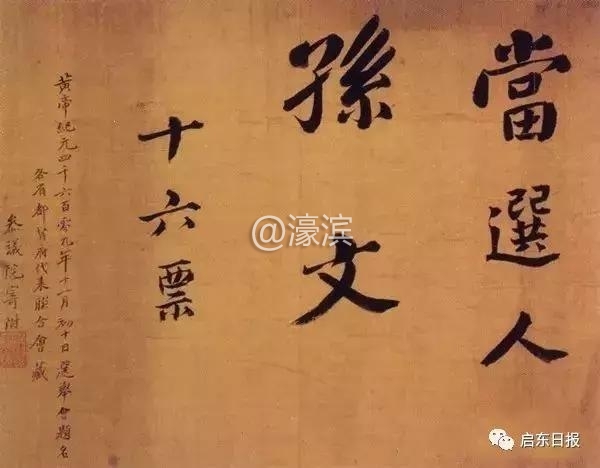 當選人
孫文
十六票
黃帝紀元四千六百零九年十一月初十日選舉會題名
各省都督府代表聯合會藏
參議院寄附
@濠滨
启东日报